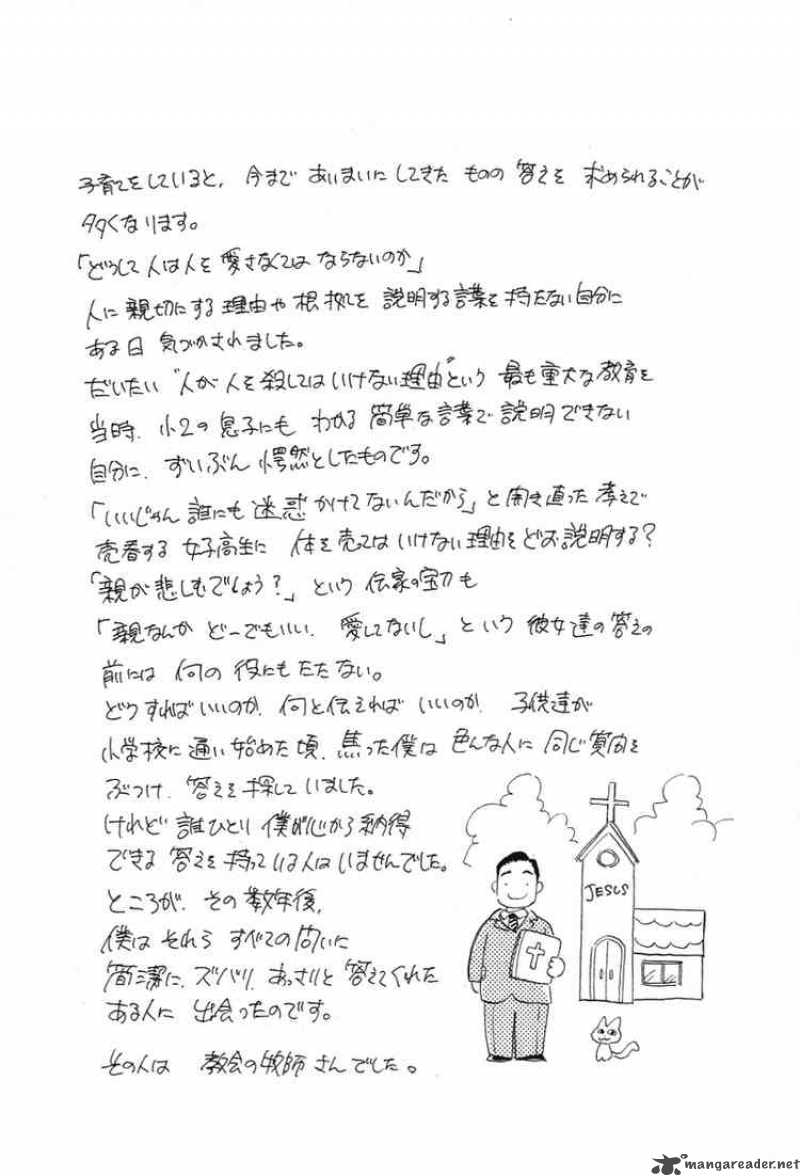 子育てをしていると、今まで あいまいに してきた ものの 答えを 求められることが
多くなります。
「どうして 人は人を 愛さなくては ならないのか」
人に 親切にする 理由や 根拠を 説明する言葉を 持たない自分に
ある日 気づかされました。
だいたい "人が人を殺してはいけない理由"という 最も重大な教育を
当時、小2の息子にも わかる 簡単な言葉で 説明できない
自分に、ずいぶん 愕然としたものです。
「いいじゃん 誰にも 迷惑 かけてないんだから」と 開き直った 考えで
売春する 女子高生に 体を売っては いけない理由を どお説明する?
「親が 悲しむでしょう?」という 伝家の宝刀も
「親なんか どーでもいい、愛してないし」という 彼女達の答えの
前には 何の 役にもたたない。
どうすればいいのか、何と伝えれば いいのか、子供達が
小学校に 通い始めた頃、焦った僕は 色んな人に 同じ質問を
ぶつけ、答えを 探して いました。
けれど 誰ひとり 僕が心から納得
できる 答えを 持っている人は いませんでした。
ところが、その 数年後、
僕は それら すべての 問いに
簡潔に、ズバリ、あっさりと 答えてくれた
ある人に 出会ったのです。
その人は 教会の牧師 さんでした。
JESUS
mangareader.net